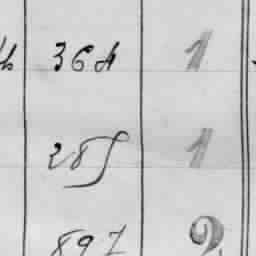 364 1
285 1
897 2